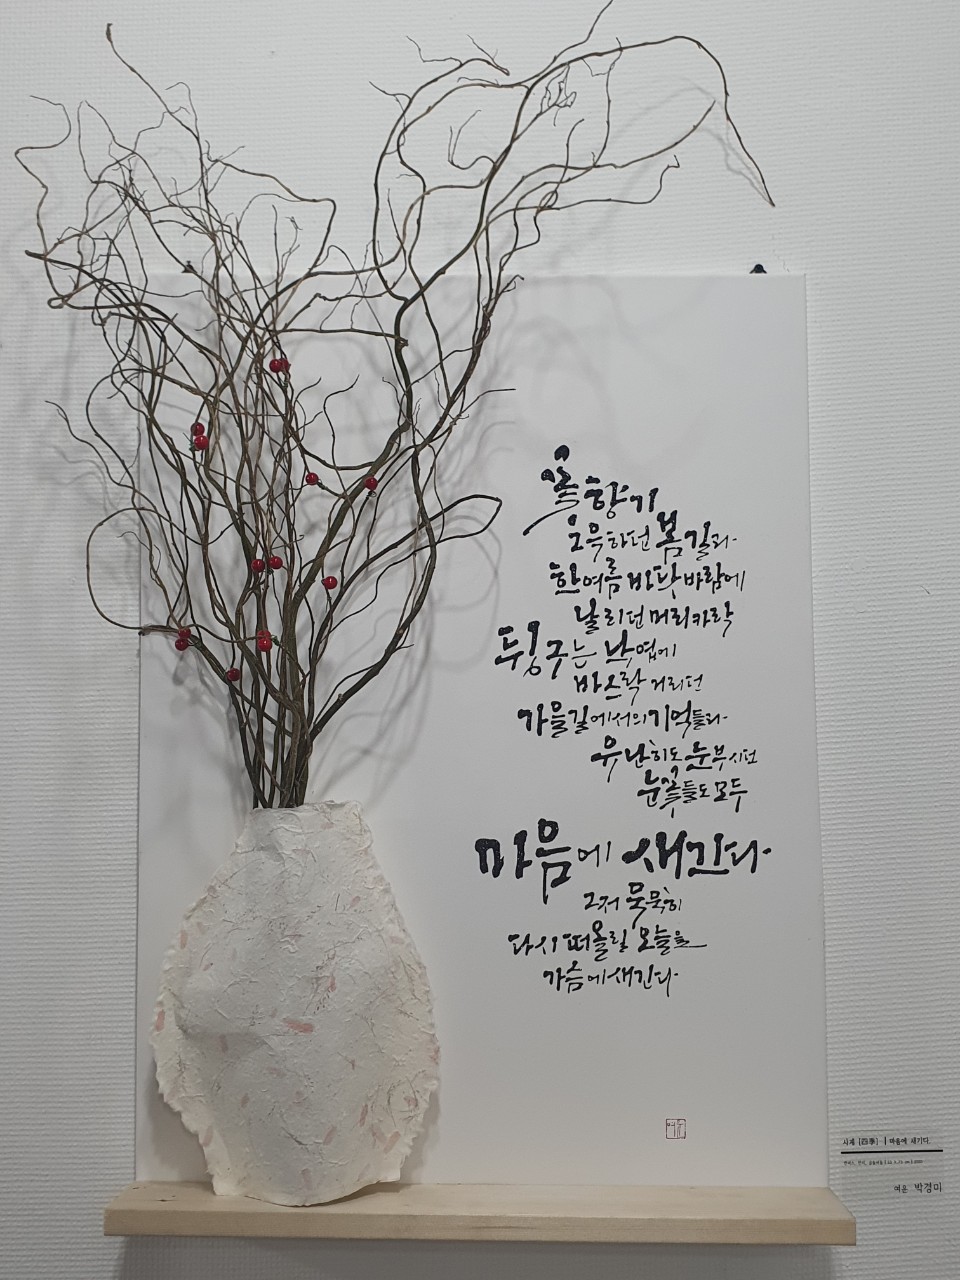 꽃향기
그윽하던 봄길과
한여름 바닷바람에
날리던 머리카락
뒹구는 낙엽에
바스락 거리던
가을길에서의 기억들과
유난히도 눈부시던
눈꽃들도 모두
마음에 새긴다
그저 묵묵히
다시 떠올릴 오늘을
가슴에 새긴다
사계 [四季] | 마음에 새기다.
여은 박경미